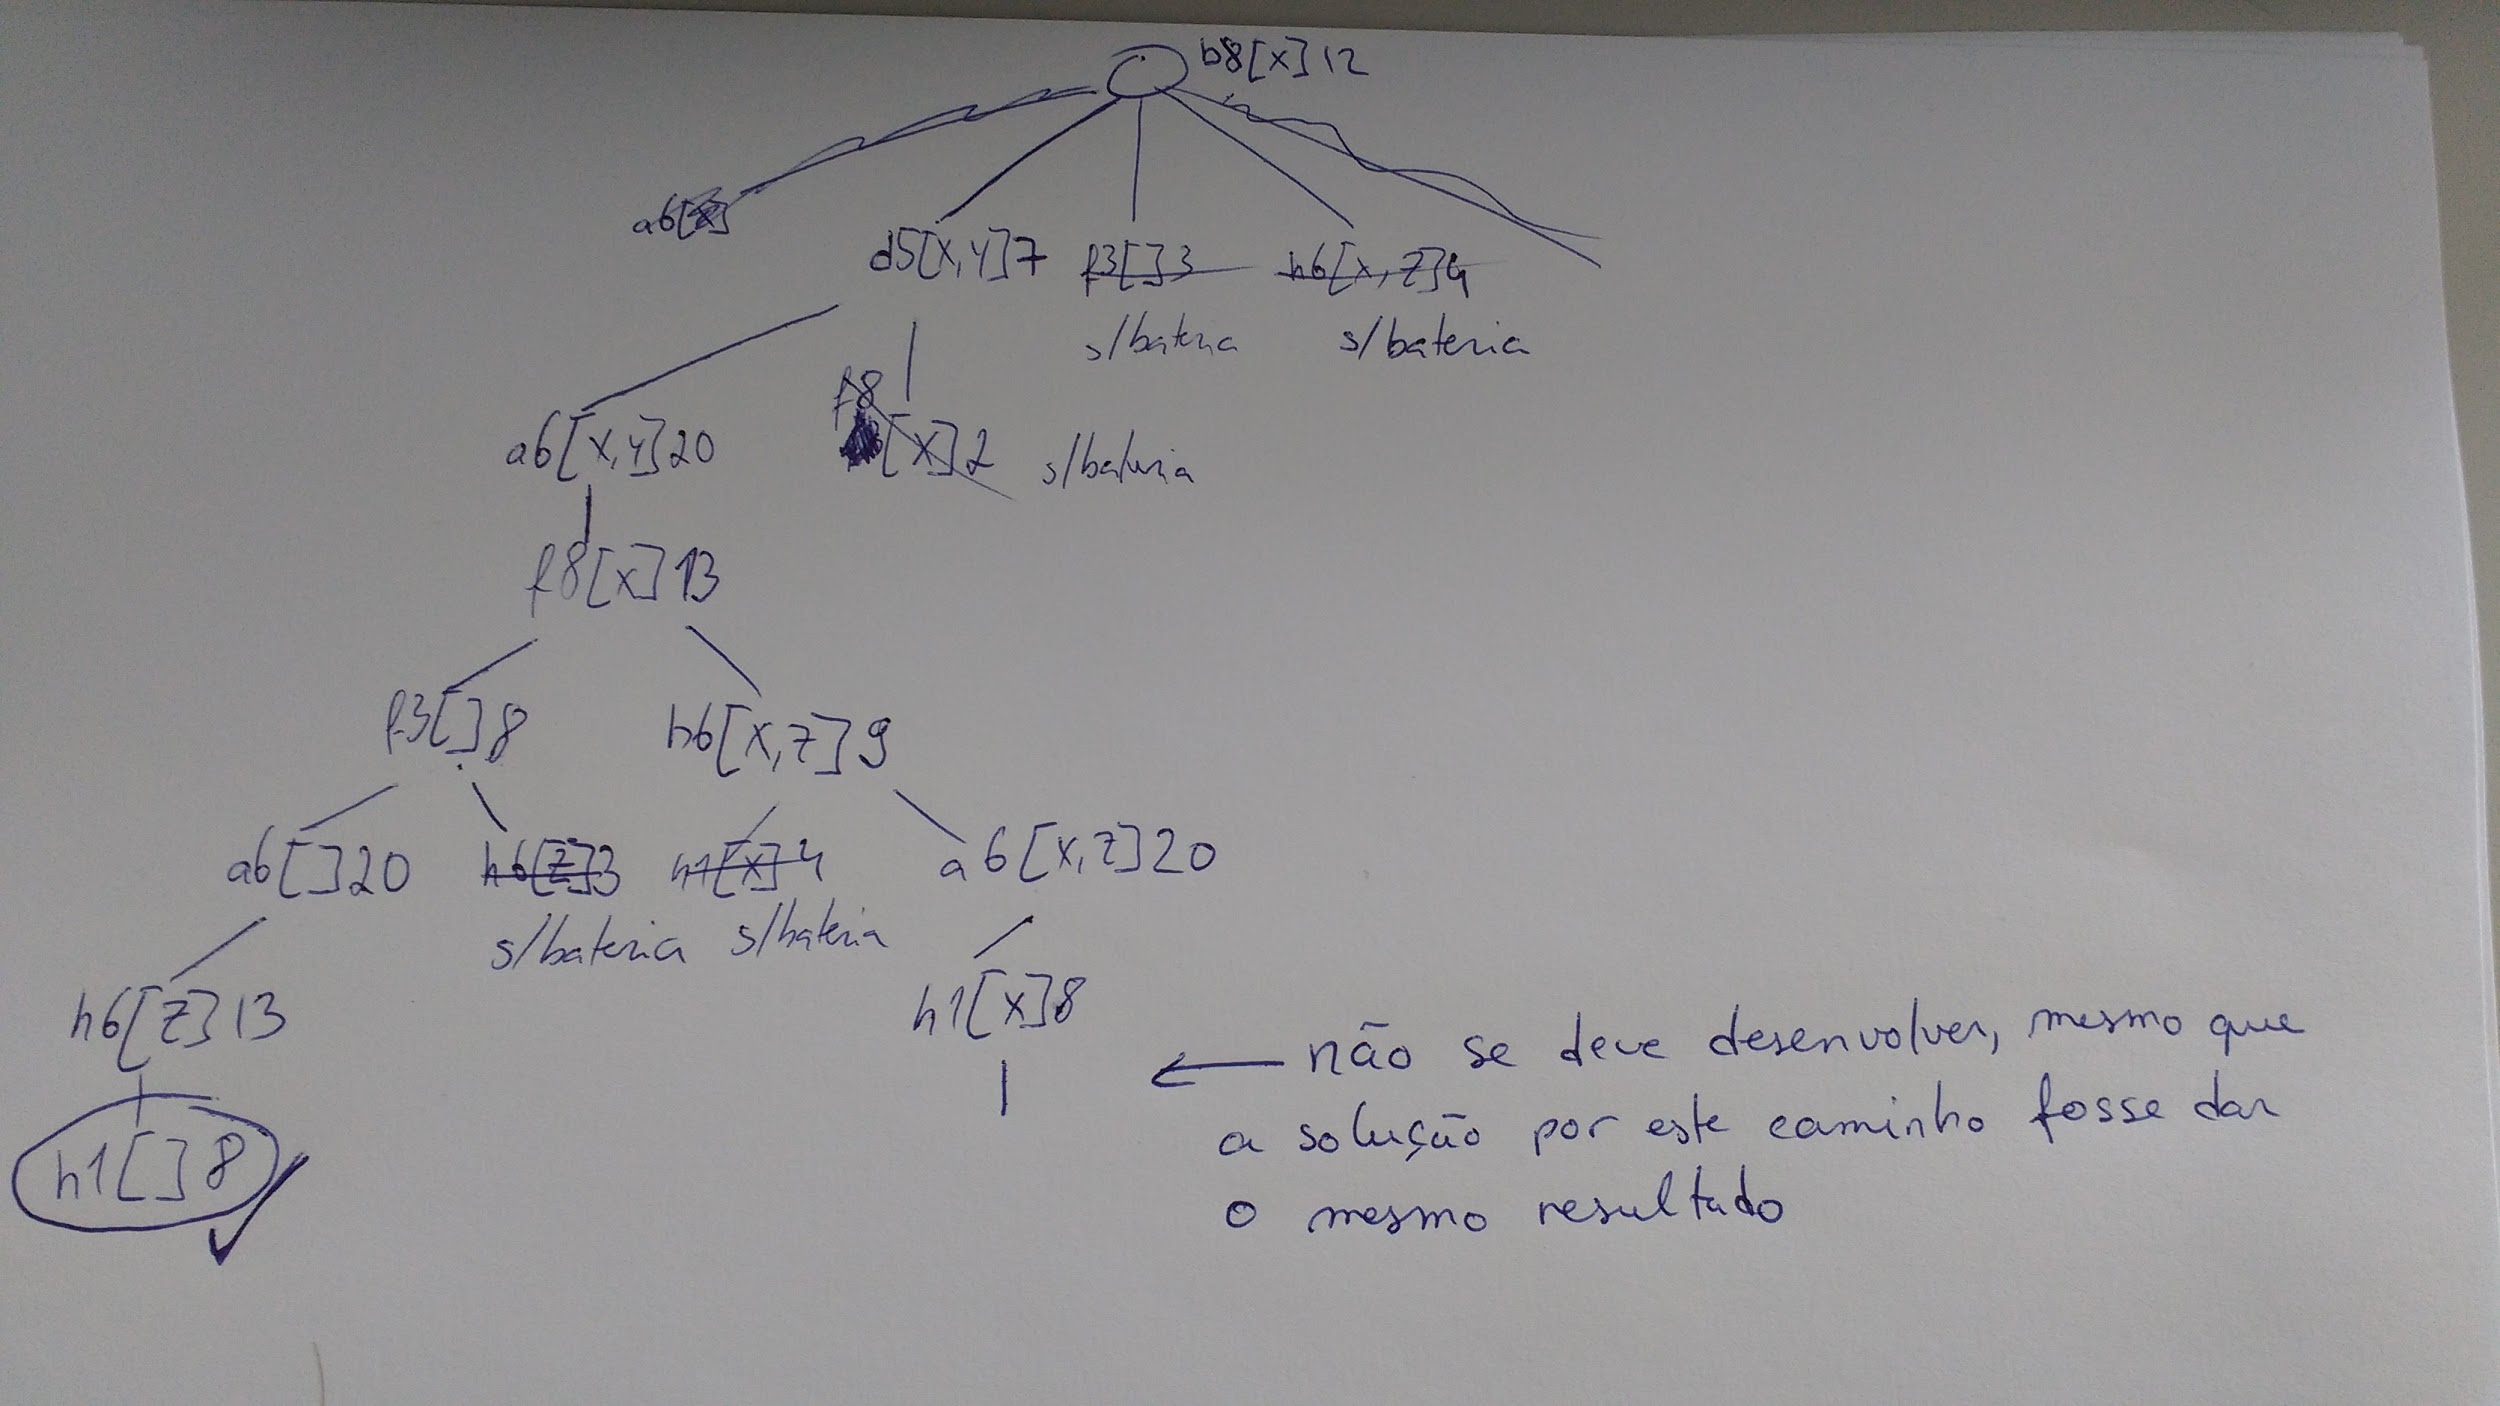 b8[x]12
a6[x]
d5[x,y]7 f3[]3 h6[x,z]4
s/bateria s/bateria
a6[x,y]20 f8[x]2 s/bateria
f8[x]13
f3[]8 h6[x,z]9
a6[]20 h6[z]3 h1[x]4 a6[x,z]20
s/bateria s/bateria
h6[z]13 h1[x]8
não se deve desenvolver, mesmo que
a solução por este caminho fosse dar
h1[]8
o mesmo resultado